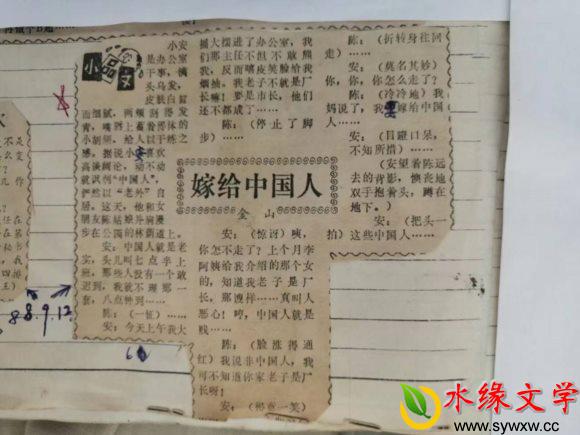 小品文
小安
是办公室
干事，满
头乌发，
皮肤白皙
而细腻，两颊刮得发
青，嘴唇上蓄着得体的
小胡须，给人以干练之
感，据说小安喜欢
高谈阔论，动不动
就讽刺“中国人”，
俨然以“老外”自
居。这天，他和女
朋友陈姑娘并肩漫
步在公园的林荫道上。
安：中国人就是老
实，头儿叫七点半上
班，那些人没有一个敢
迟到，我就不理那一
套，八点钟到……
陈：（一怔）……
安：今天上午我大
摇大摆进了办公室，我
们那主任不但不敢熊
我，反而嘻皮笑脸给我
烟抽。我老子不就是厂
长嘛！要是市长，他们
还不都成了……
陈：（停止了脚
步）……
嫁给中国人
金山
安：（惊讶）咦，
你怎不走了？上个月李
阿姨给我介绍的那个女
的，知道我老子是厂
长，那洩样……真叫人
恶心！哼，中国人就是
贱……
陈：（脸涨得通
红）我说非中国人，我
可不知道你家老子是厂
长呀！
安：
一笑）
陈：（折转身往回
走）……
安：（莫名其妙）
你，你，你怎么走了？
陈：（冷冷地）我
妈说了，我要嫁给中国
人……
安：（目瞪口呆，
不知所措）……
（安望着陈远
去的背影，懊丧地
双手抱着头，蹲在
地下。）
安：（把头一
拍）这些中国人……
88.9.12
水缘文学
www.sywxw.cc